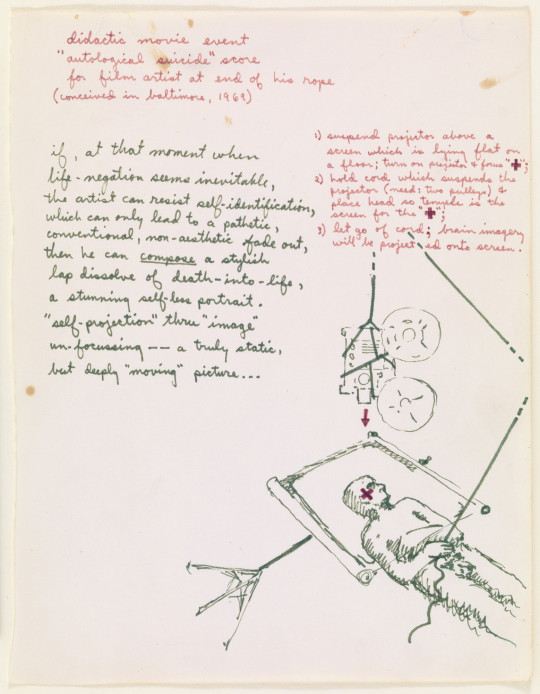 didactic movie event
"autological suicide" score
for film artist at end of his rope
(conceived in baltimore, 1969)
if, at that moment when
life-negation seems inevitable,
the artist can resist self-identification,
which can only lead to a pathetic,
conventional, non-aesthetic fade out,
then he can compose a stylish
lap dissolve of death-into-life,
a stunning self-less portrait.
"self-projection" thru "image"
un-focussing -- a truly static,
but deeply "moving" picture...
1) suspend projector above a
screen which is lying flat on
a floor; turn on projector & focus "✚";
2) hold cord which suspends the
projector (need: two pulleys) &
place head so temple is the
screen for the "✚";
3) let go of cord; brain imagery
will be project ed onto screen.